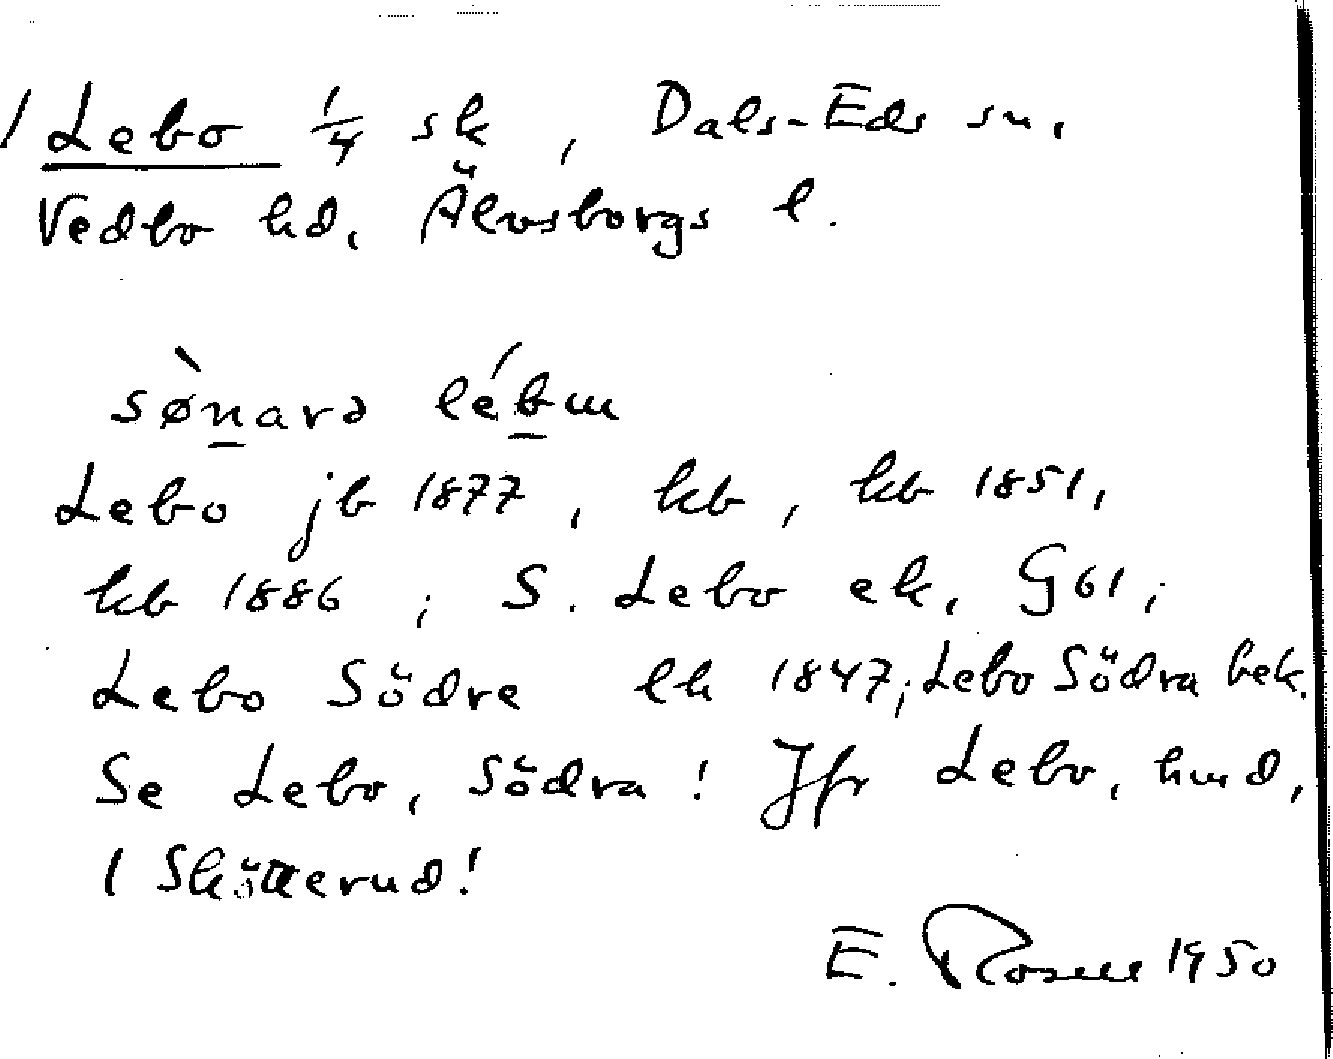 1 Lebo 1/4 sk, Dals-Eds sn,
Vedbo hd, Älvsborgs l.
sø̀narə lébɯ
Lebo jb 1877, kb, kb 1851,
kb 1886; S. Lebo ek, G61;
Lebo Södre lk 1847; Lebo Södra bek.
Se Lebo, Södra! Jfr Lebo, hmd,
1 Skötterud!
E. Rosell 1950